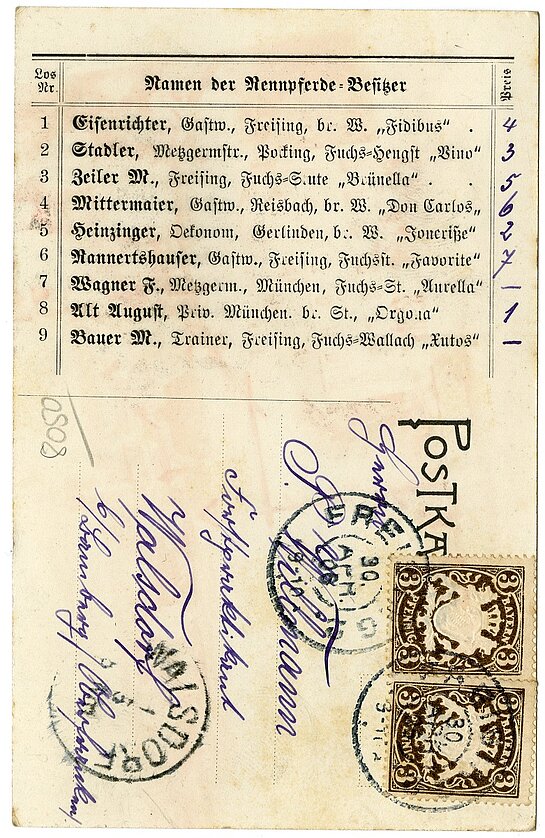 Los Nr. Namen der Rennpferde-Besitzer Preis
1 Eisenrichter, Gastw., Freising, br. W. „Fidibus“ . 4
2 Stadler, Metzgermstr., Pocking, Fuchs-Hengst „Vino“ 3
3 Zeiler M., Freising, Fuchs-Stute „Brünella“ . . 5
4 Mittermaier, Gastw., Reisbach, br. W. „Don Carlos„ 6
5 Heinzinger, Oekonom, Gerlinden, br. W. 2
6 Nannertshauser, Gastw., Freising, Fuchsst. „Favorite“ 7
7 Wagner F., Metzgerm., München, Fuchs-St. „Aurella“ –
8 Alt August, Priv. München. br. St., 1
9 Bauer M., Trainer, Freising, Fuchs-Wallach „Xutos“ –
POSTKA
Herrn
Forstpraktikant
Walsdorf
b/Bamberg/Oberfranken/
FREI G
30
APR
06
WALSDORF
3 PFENNIG BAYERN 3
3 PFENNIG BAYERN 3
30
APR